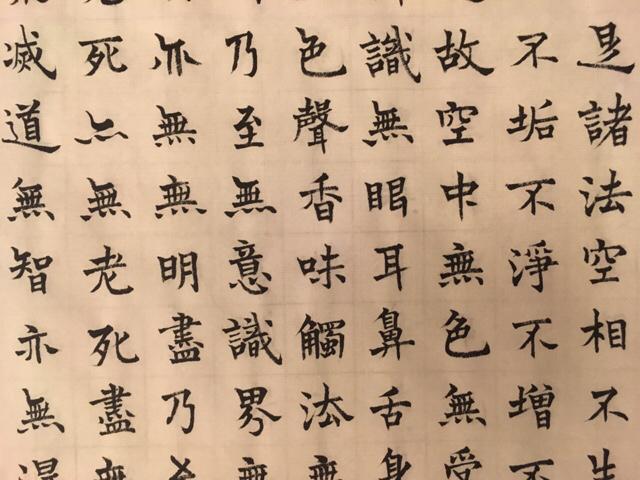 是諸法空相不生
不垢不淨不增不
故空中無色無受
識無眼耳鼻舌身
色聲香味觸法無
乃至無意識界無
亦無無明盡乃至
死亦無老死盡無
滅道無智亦無得